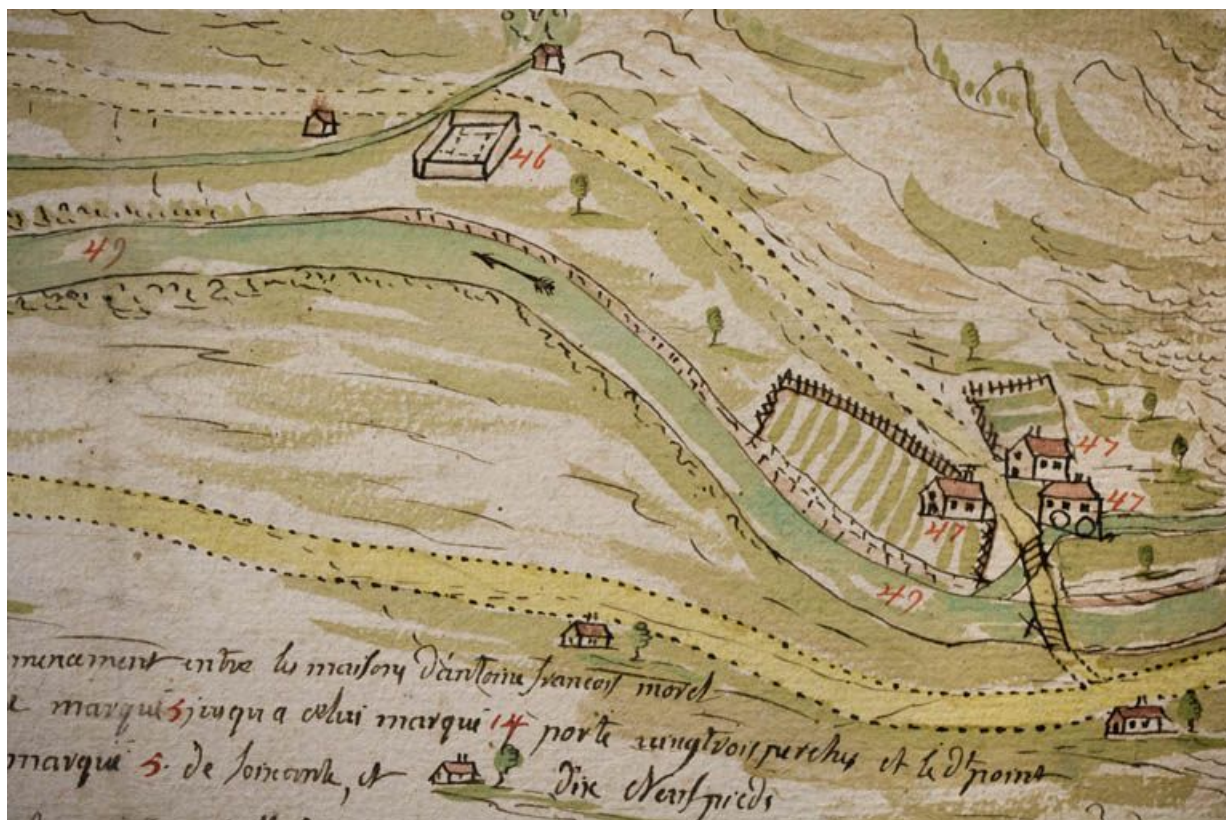 46
49
47
47
47
49
mencement entre les maisons d'antoine françois morel
marqué 5 jusqua celui marqué 14 porte vingtrois perches et le dt point
marqué 5. de soixante, et dix Neuf pieds